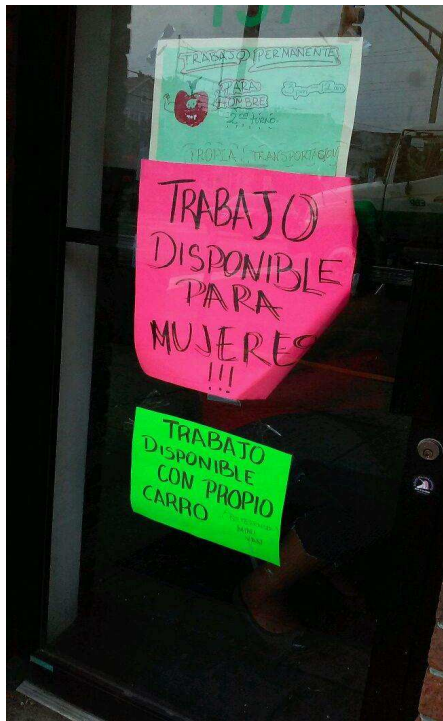 137
TRABAJO PERMANENTE
PARA
HOMBRE
2do turno
PROPIA TRANSPORTACION
TRABAJO
DISPONIBLE
PARA
MUJERES
!!!
TRABAJO
DISPONIBLE
CON PROPIO
CARRO